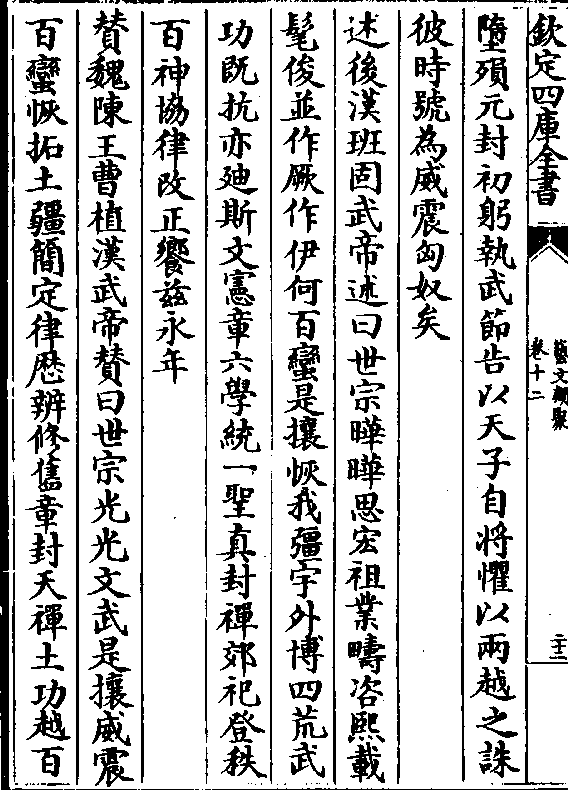 欽定四庫全書
藝文類聚
卷十二
二十二
墮殞元封初躬執武節告以天子自將懼以兩越之誅
彼時號為威震匈奴矣
述後漢班固武帝述曰世宗曄曄思宏祖業疇咨熙載
髦俊並作厥作伊何百蠻是攘恢我疆宇外博四荒武
功既抗亦廸斯文憲章六學統一聖真封禪郊祀登秩
百神協律改正饗兹永年
賛魏陳王曹植漢武帝賛曰世宗光光文武是攘威震
百蠻恢拓土疆簡定律歴辨修舊章封天禪土功越百